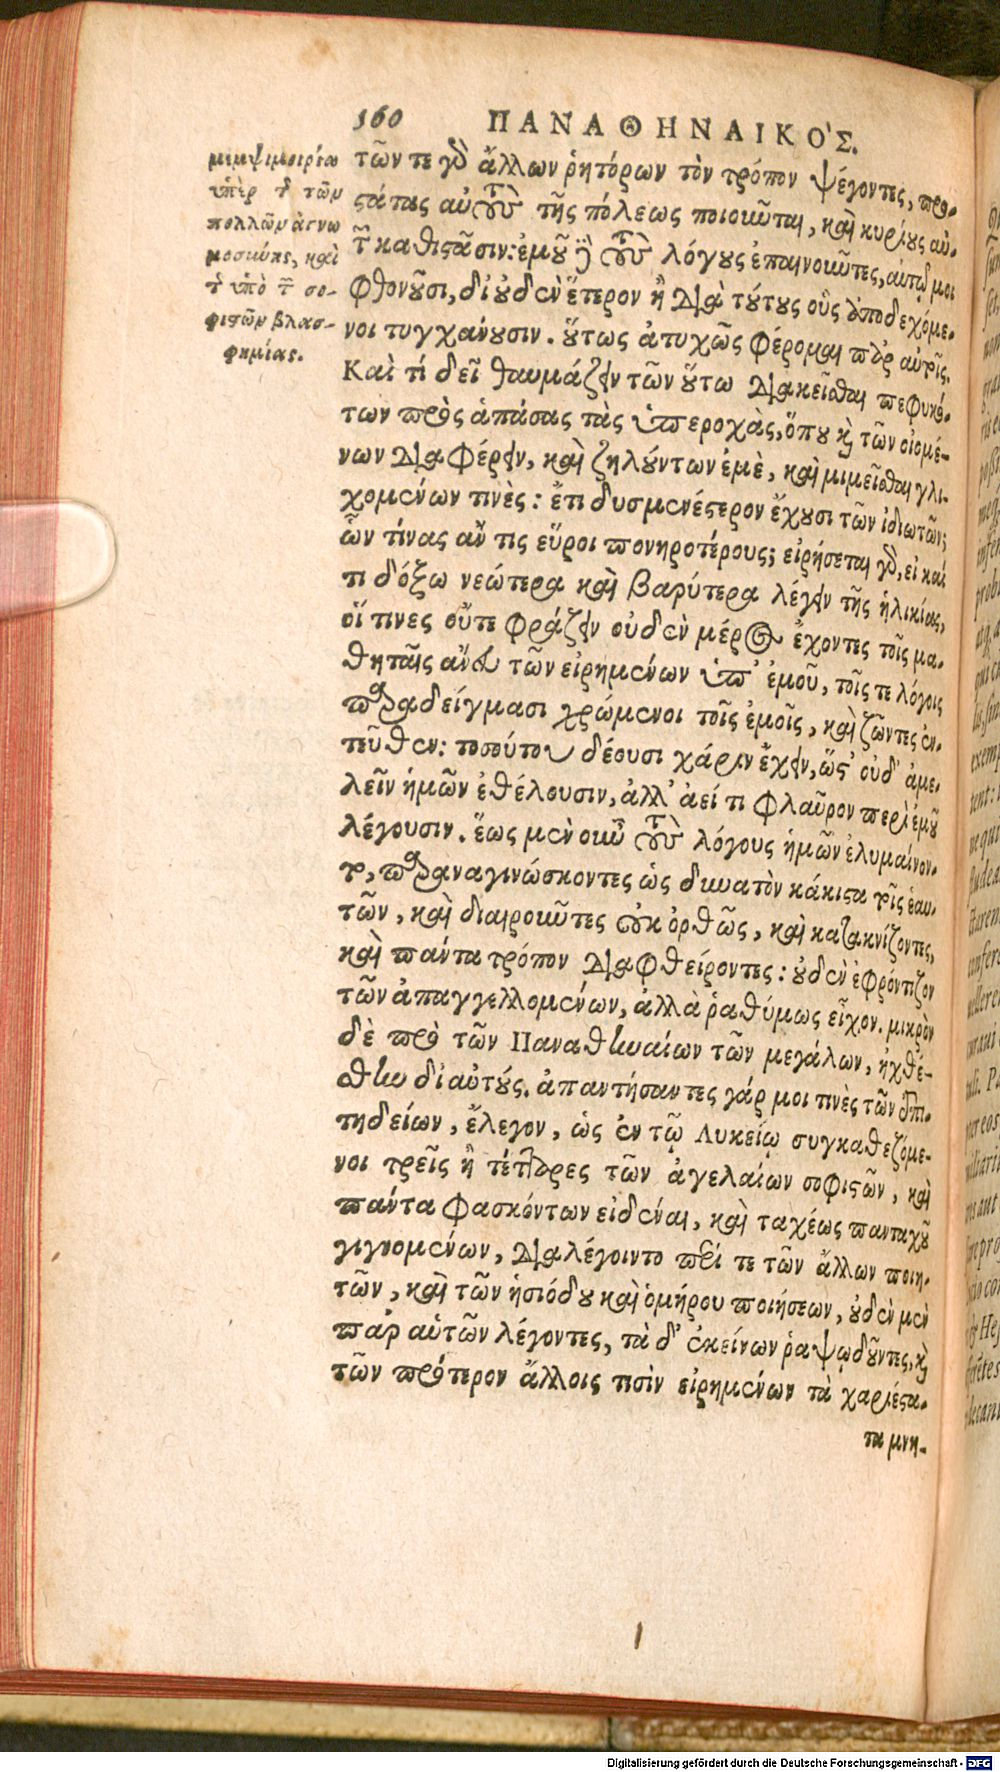 160 ΠΑΝΑΘΗΝΑΙΚΟ'Σ.
μεμψιμοιρία
ὑπὲρ τ τῶν
πολλῶν ἀγνω
μοσύνης, καὶ
τ ὑπὸ τ σο-
φιστῶν βλασ-
φημίας.
τῶν τε γὸ ἄλλων ῥητόρων τὸν τρόπον ψέγοντες, προ-
στάτας αὐτοὺς τῆς πόλεως ποιοῦνται, καὶ κυρίους αὑ-
τ καθιστᾶσιν: ἐμοῦ ϳ τοὺς λόγους ἐπαινοῦντες, αὐτῷ μοι
φθονοῦσι, δι' οὐδὲν ἕτερον ἢ διὰ τούτους οὓς ἀποδεχόμε-
νοι τυγχάνουσιν. οὕτως ἀτυχῶς φέρομαι παρ' αὐτοῖς.
Καὶ τί δεῖ θαυμάζειν τῶν οὕτω διακεῖσθαι πεφυκό-
των πρὸς ἁπάσας τὰς ὑπεροχὰς, ὅπου καὶ τῶν οἰομέ-
νων διαφέρειν, καὶ ζηλούντων ἐμὲ, καὶ μιμεῖσθαι γλι-
χομένων τινὲς: ἔτι δυσμενέστερον ἔχουσι τῶν ἰδιωτῶν;
ὧν τίνας ἄν τις εὕροι πονηροτέρους; εἰρήσεται γὸ, εἰ καί
τι δόξω νεώτερα καὶ βαρύτερα λέγειν τῆς ἡλικίας,
οἵ τινες οὔτε φράζειν οὐδὲν μέρος ἔχοντες τοῖς μα-
θηταῖς ἄνευ τῶν εἰρημένων ὑπ' ἐμοῦ, τοῖς τε λόγοις
παραδείγμασι χρώμενοι τοῖς ἐμοῖς, καὶ ζῶντες ἐν-
τεῦθεν: τοσούτου δέουσι χάριν ἔχειν, ὥστ' οὐδ' ἀμε-
λεῖν ἡμῶν ἐθέλουσιν, ἀλλ' ἀεί τι φλαῦρον περὶ ἐμοῦ
λέγουσιν. ἕως μὲν οὖν τοὺς λόγους ἡμῶν ἐλυμαίνον-
το, παραναγινώσκοντες ὡς δυνατὸν κάκιστα τοῖς ἑαυ-
τῶν, καὶ διαιροῦντες οὐκ ὀρθῶς, καὶ κατακνίζοντες,
καὶ πάντα τρόπον διαφθείροντες: οὐδὲν ἐφρόντιζον
τῶν ἀπαγγελλομένων, ἀλλὰ ῥαθύμως εἶχον. μικρὸν
δὲ πρὸ τῶν Παναθηναίων τῶν μεγάλων, ἠχθέ-
σθην δι' αὐτούς. ἀπαντήσαντες γάρ μοι τινὲς τῶν ἐπι-
τηδείων, ἔλεγον, ὡς ἐν τῷ Λυκείῳ συγκαθεζόμε-
νοι τρεῖς ἢ τέτταρες τῶν ἀγελαίων σοφιστῶν, καὶ
πάντα φασκόντων εἰδέναι, καὶ ταχέως πανταχοῦ
γιγνομένων, διαλέγοιντο περί τε τῶν ἄλλων ποιη-
τῶν, καὶ τῶν ἡσιόδου καὶ ὁμήρου ποιήσεων, οὐδὲν μὲν
παρ' αὑτῶν λέγοντες, τὰ δ' ἐκείνων ῥαψῳδοῦντες, καὶ
τῶν πρότερον ἄλλοις τισὶν εἰρημένων τὰ χαριέστα-
τα μνη-
Digitalisierung gefördert durch die Deutsche Forschungsgemeinschaft - DFG